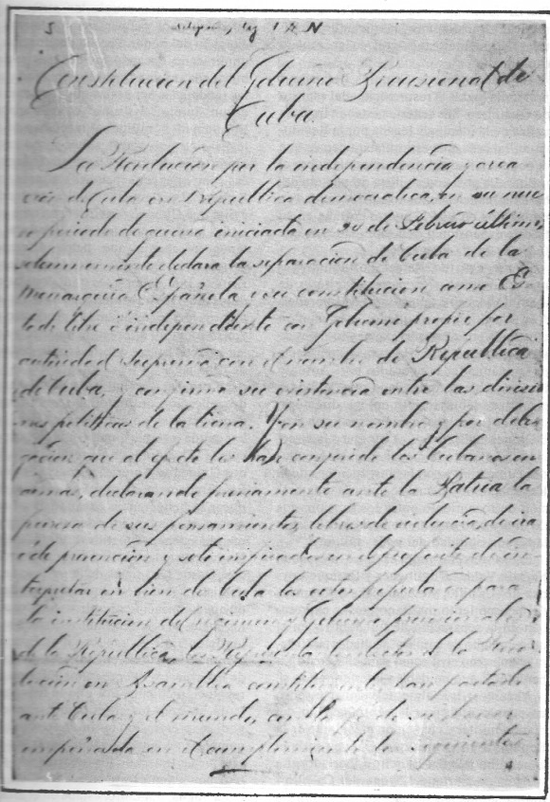 Constitucion del Gobierno Provisional de
Cuba.
La Revolución por la independencia y crea
ción de Cuba en República democratica, en su nue
vo periodo de guerra iniciada en 24 de Febrero último,
solemnemente declara la separación de Cuba de la
monarquia Española y su constitucion como Es
tado libre é independiente con Gobierno propio por
autoridad suprema con el nombre de República
de Cuba, y confirma su existencia entre las divisio
nes politicas de la tierra. Y en su nombre y por dele
gación que al efecto les han conferido los cubanos en
armas, declarando previamente ante la Patria la
pureza de sus pensamientos, libres de violencia, de ira
ó de prevención y solo inspirados en el proposito de in
terpretar en bien de Cuba los votos populares para
la institucion del regimen y Gobierno provisionales
de la República, los Representantes electos de la Revo
lución en Asamblea constituyente, han pactado
ante Cuba y el mundo, con la fé de su honor
empeñada en el cumplimiento los siguientes